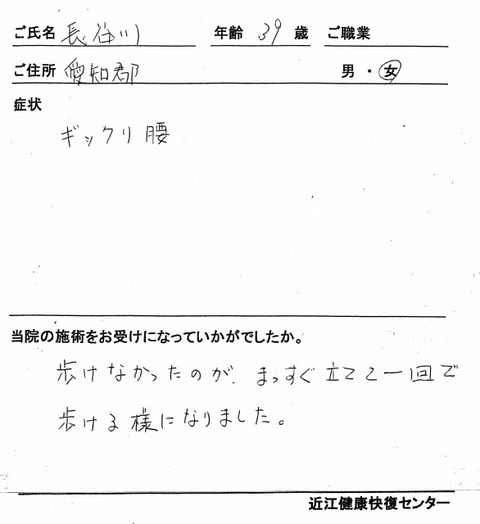 ご氏名 長谷川 年齢 39 歳 ご職業
ご住所 愛知郡 男・女
症状
ギックリ腰
当院の施術をお受けになっていかがでしたか。
歩けなかったのが、まっすぐ立てて一回で
歩ける様になりました。
近江健康快復センター